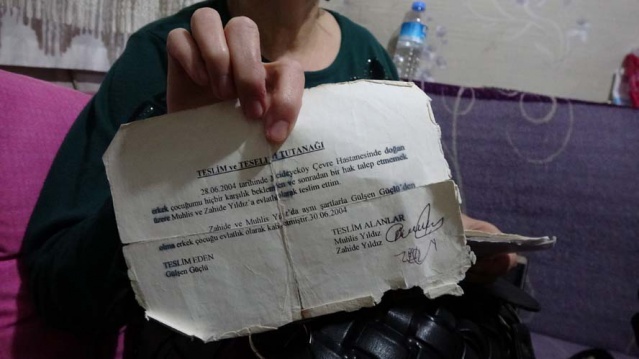 TESLİM ve TESELLÜM TUTANAĞI
28.06.2004 tarihinde Mecidiyeköy Çevre Hastanesinde doğan
erkek çocuğumu hiçbir karşılık beklemeden ve sonradan bir hak talep etmemek
üzere Muhlis ve Zahide Yıldız'a evlatlık olarak teslim ettim.
Zahide ve Muhlis Yıldız'da aynı şartlarla Gülşen Güçlü'den
olma erkek çocuğu evlatlık olarak kabul etmiştir.30.06.2004
TESLİM ALANLAR
Muhlis Yıldız.
Zahide Yıldız.
TESLİM EDEN
Gülşen Güçlü